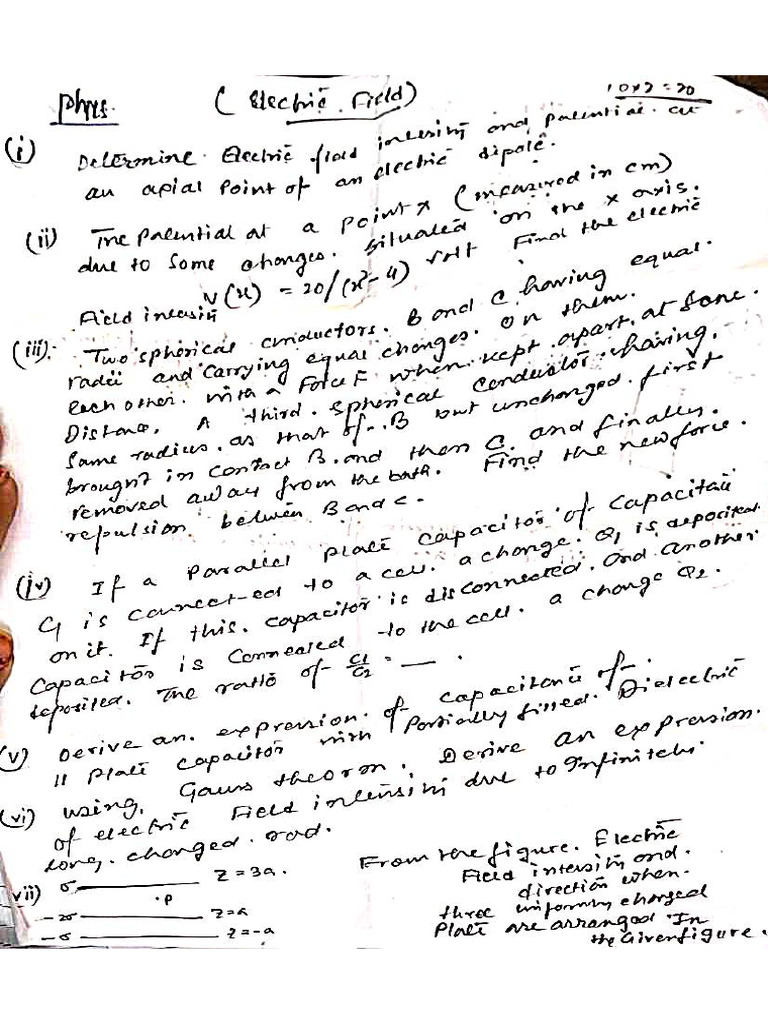 Phys. (Electric Field) 10×2=20
(i) Determine Electric field intensity and potential at
an axial point of an electric dipole.
(ii) The potential at a point x (measured in cm)
due to some charges situated on the x axis.
V(x) = 20/(x²-4) volt Find the electric
Field intensity
(iii). Two spherical conductors. B and C having equal.
radii and carrying equal charges on them.
Each other. with a Force F when kept apart, at some.
Distance. A third. spherical conductor. having.
same radius. as that of B but uncharged. first
brought in contact B. and then C. and finally.
removed away from the both. Find the new force.
repulsion between B and C.
(iv) If a parallel plate capacitor of capacitance
C1 is connected to a cell. a charge. Q1 is deposited
on it. If this. capacitor is disconnected. and another
capacitor is connected to the cell. a charge Q2.
deposited. The ratio of C1/C2 = —.
(v) Derive an expression. of capacitance of
11 plate capacitor with partially filled. Dielectric
(vi) Using. Gauss theorom. Derive an expression.
of electric Field intensity due to Infinitely
long. charged. rod.
vii) σ Z=3a.
.P
-2σ Z=a
-σ Z=-a
From the figure. Electric
Field intensity and.
direction when.
three uniformly charged
plate are arranged In
the Given figure.